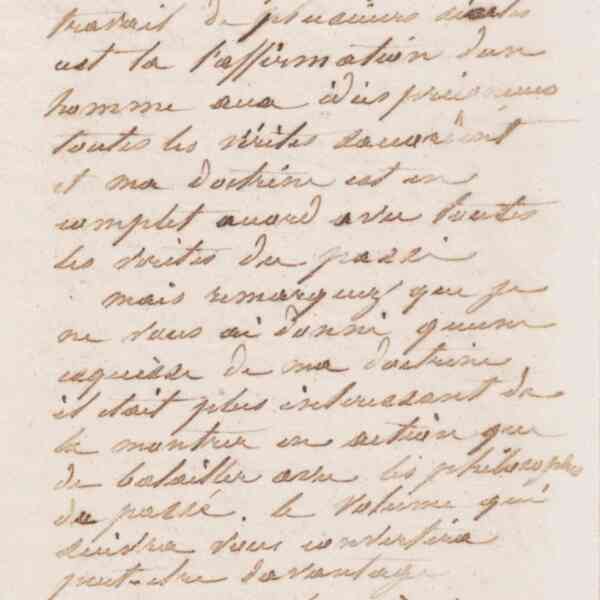 travail de plusieurs siecles
est la l'affirmation d'un
homme aux idées
toutes les vérités
et ma doctrine est en
complet accord avec toutes
les vérités du passé
mais remarquez que je
ne vous ai donné qu'une
esquisse de ma doctrine
il était plus interessant de
la montrer en action que
de batailler avec les philosophes
du passé. le volume qui
suivra vous convertira
peut-etre davantage